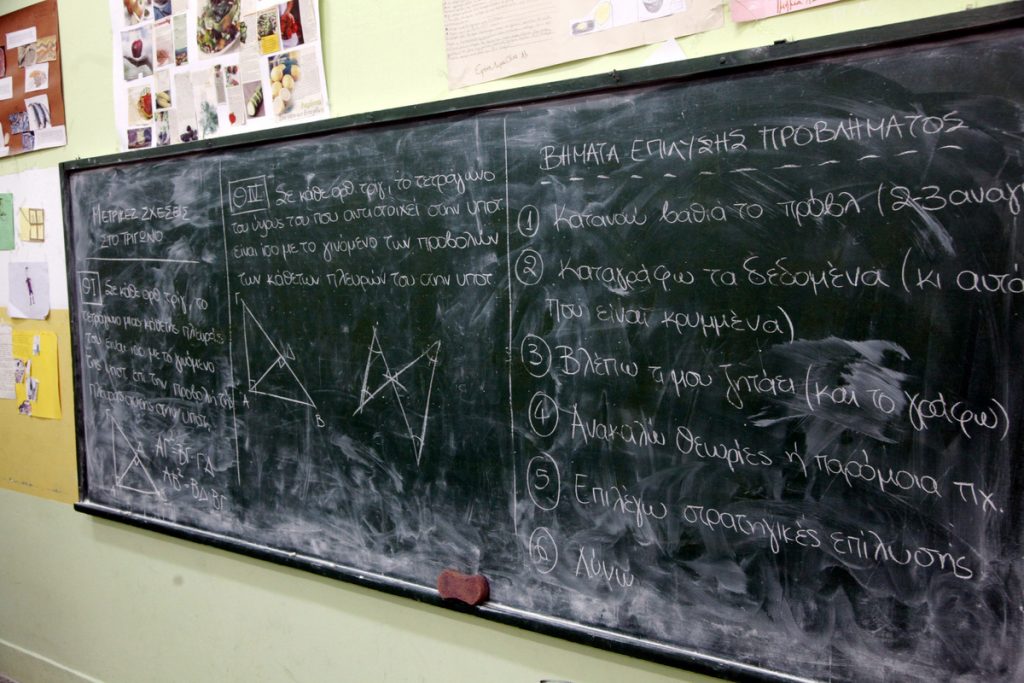 ΜΕΤΡΙΚΕΣ ΣΧΕΣΕΙΣ
ΣΤΟ ΤΡΙΓΩΝΟ
ΘΙ Σε κάθε ορθ τριγ. το
τετράγωνο μιας κάθετης πλευράς
του είναι ίσο με το γινόμενο
της υποτ. επί την προβολή της
πλευράς αυτής στην υποτ.
ΑΓ² = ΒΓ·ΓΔ
ΑΒ² = ΒΔ·ΒΓ
ΘΙΙ Σε κάθε ορθ. τριγ. το τετράγωνο
του ύψους του που αντιστοιχεί στην υποτ
είναι ίσο με το γινόμενο των προβολών
των κάθετων πλευρών του στην υποτ.
Γ
Α
Β
ΒΗΜΑΤΑ ΕΠΙΛΥΣΗΣ ΠΡΟΒΛΗΜΑΤΟΣ
1 Κατανοώ βαθιά το πρόβλ (2-3 αναγ
2 Καταγράφω τα δεδομένα (κι αυτά
που είναι κρυμμένα)
3 Βλέπω τι μου ζητάει (και το γράφω)
4 Ανακαλώ θεωρίες ή παρόμοια πχ.
5 Επιλέγω στρατηγικές επίλωσής
6 Λύνω